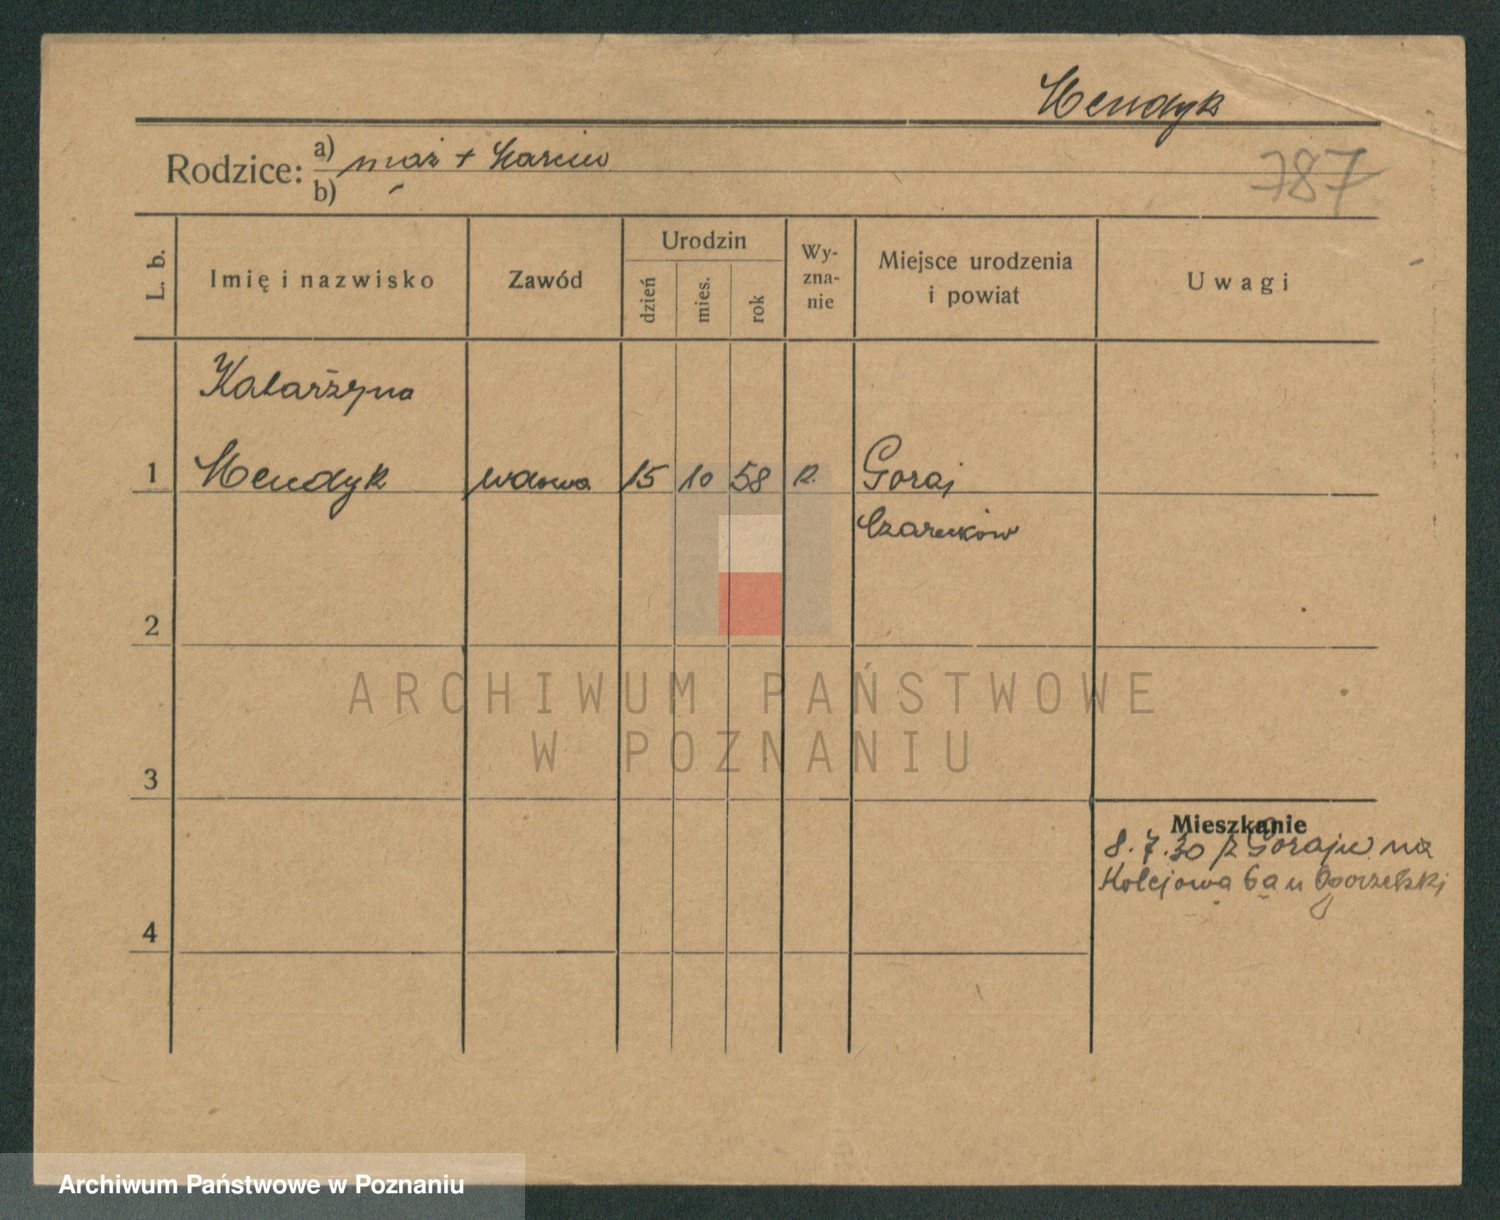 Mendyk
Rodzice: a) mąż + Marcin
b) -
787
L. b.
Imię i nazwisko
Zawód
Urodzin
dzień
mies.
rok
Wy-
zna-
nie
Miejsce urodzenia
i powiat
Uwagi
Katarzyna
1 Mendyk wdowa 15 10 58 k. Goraj
Czarnków
2
ARCHIWUM PAŃSTWOWE
W POZNANIU
3
Mieszkanie
8.7.30 z Goraju na
Kolejowa 6a u Ogorzelski
4
Archiwum Państwowe w Poznaniu